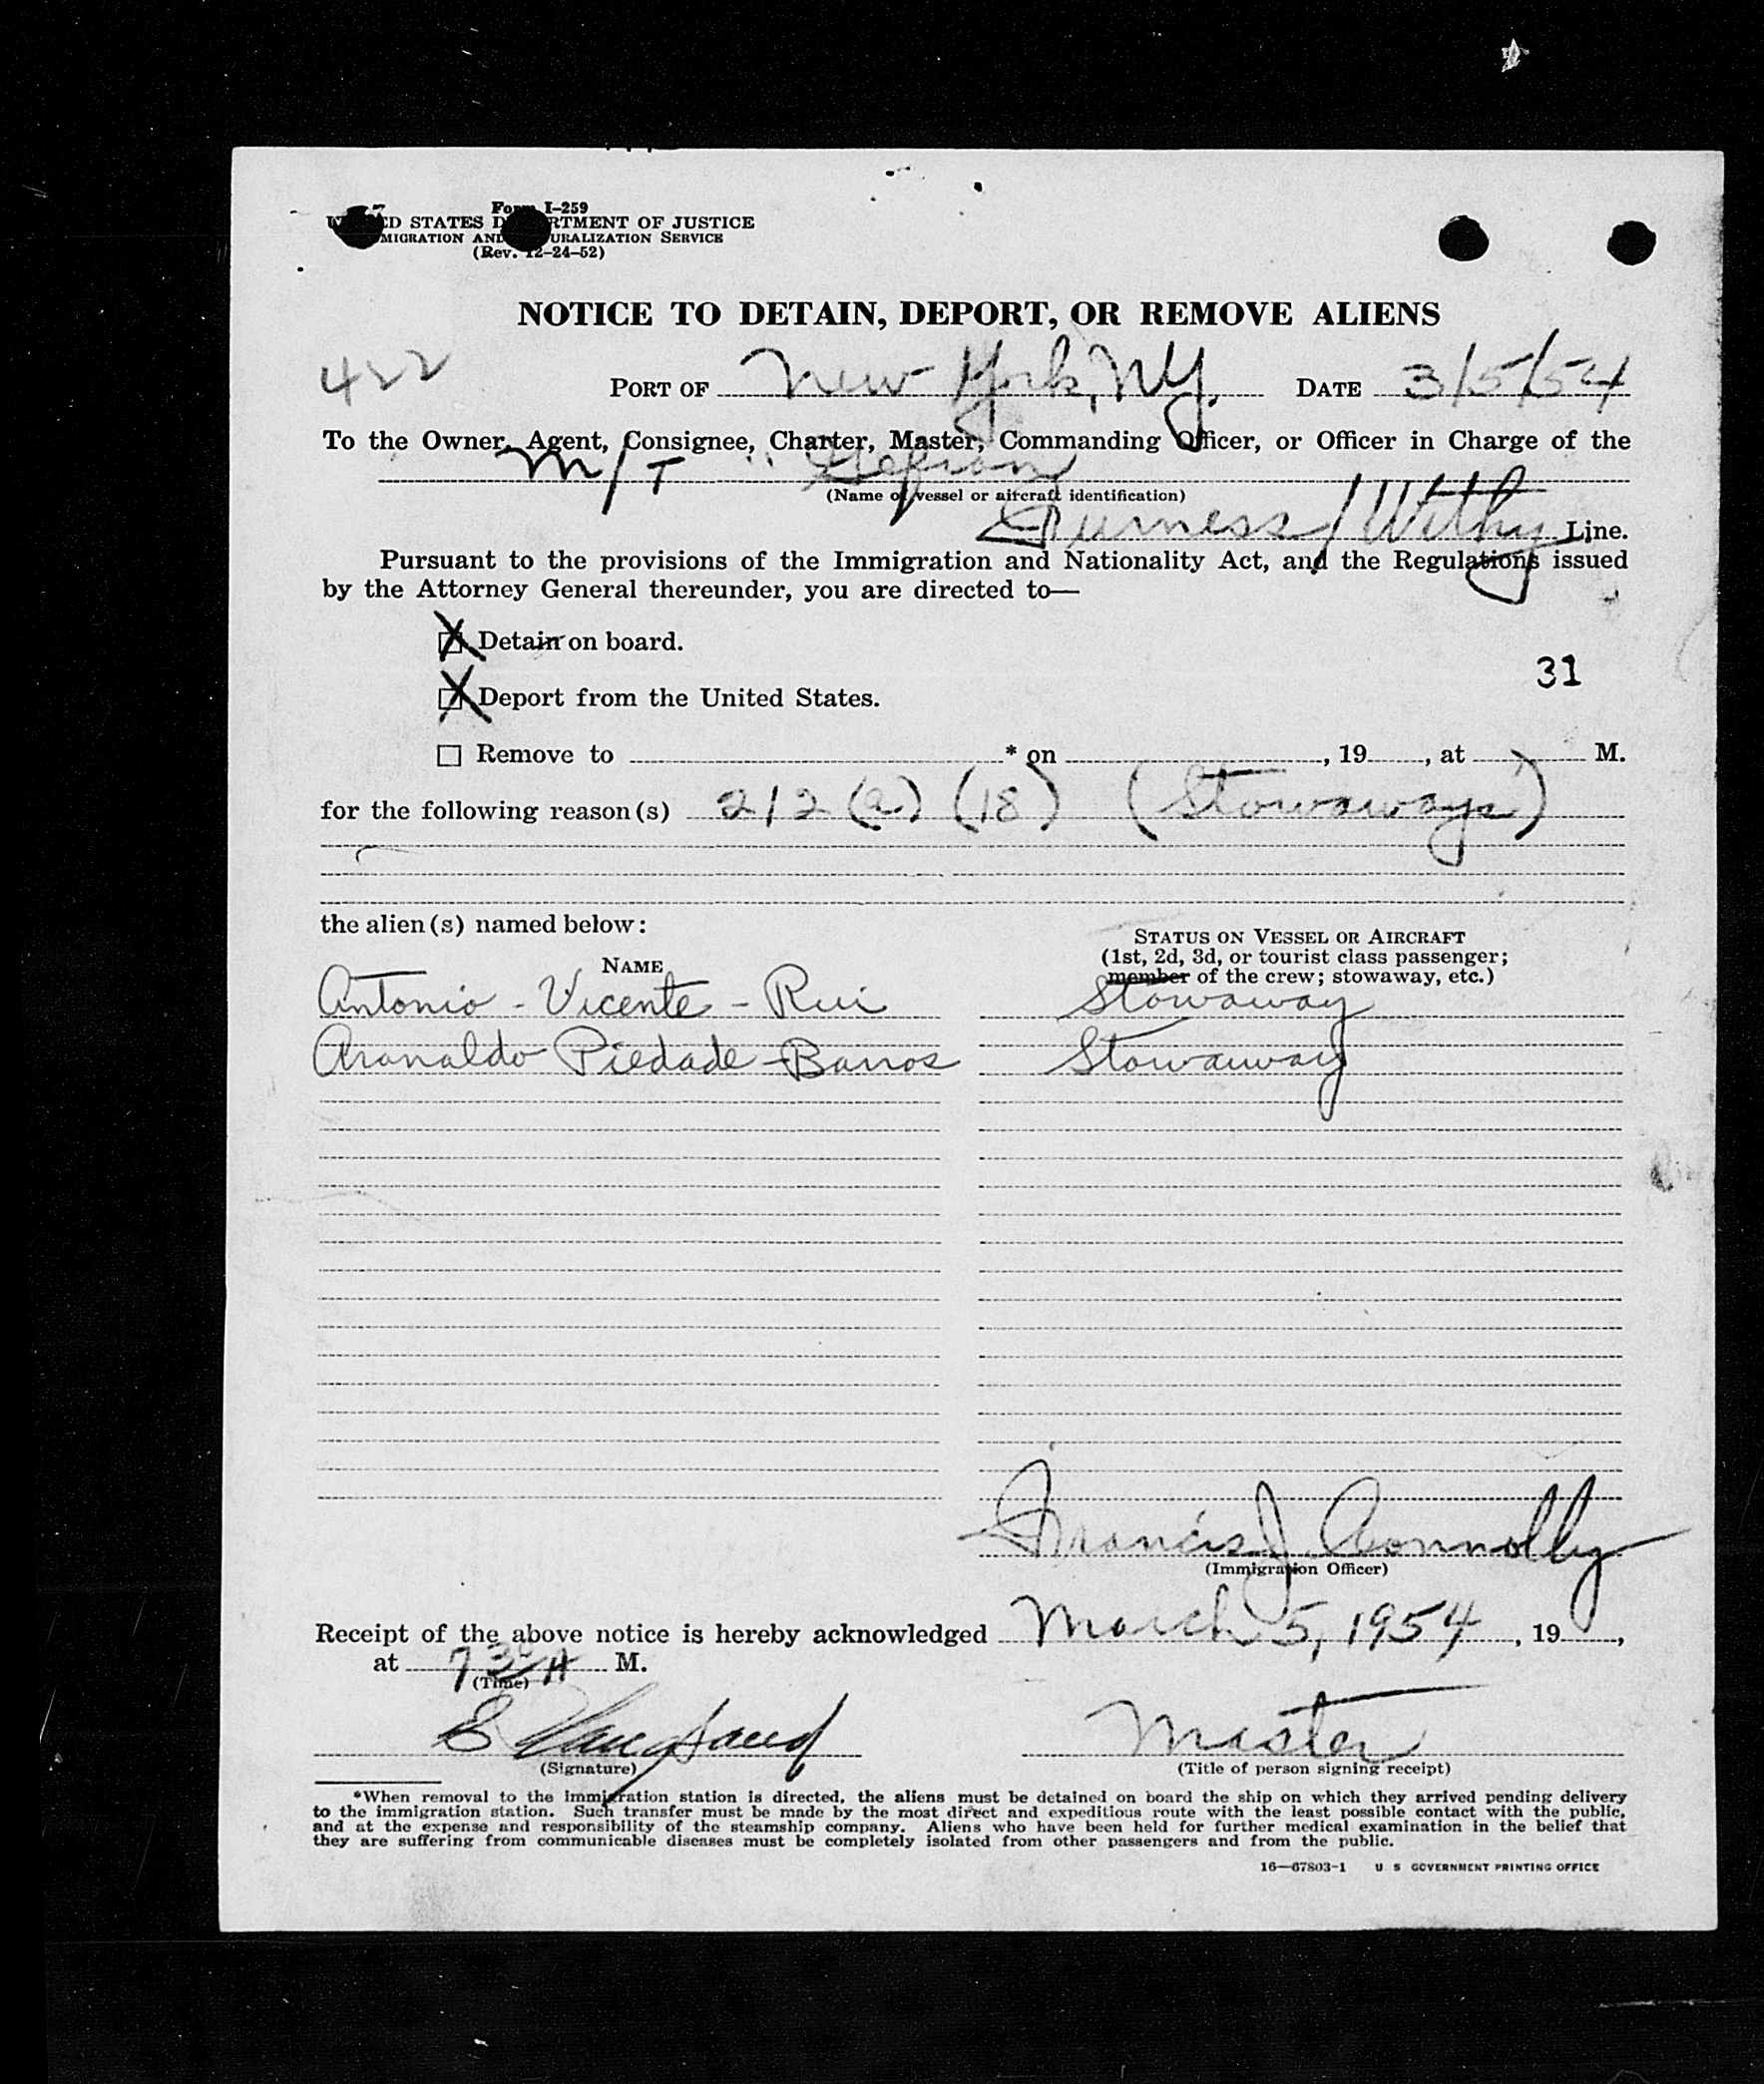 Form I-259
UNITED STATES DEPARTMENT OF JUSTICE
IMMIGRATION AND NATURALIZATION SERVICE
(Rev. 12-24-52)
NOTICE TO DETAIN, DEPORT, OR REMOVE ALIENS
422
PORT OF New York, NY. DATE 3/5/54
To the Owner, Agent, Consignee, Charter, Master, Commanding Officer, or Officer in Charge of the
M/T "Gefion
(Name of vessel or aircraft identification)
Furness/Withy Line.
Pursuant to the provisions of the Immigration and Nationality Act, and the Regulations issued
by the Attorney General thereunder, you are directed to—
☒ Detain on board.
31
☒ Deport from the United States.
☐ Remove to * on , 19 , at M.
for the following reason(s) 212 (a) (18) (Stowaways)
the alien(s) named below:
STATUS ON VESSEL OR AIRCRAFT
(1st, 2d, 3d, or tourist class passenger;
member of the crew; stowaway, etc.)
NAME
Antonio - Vicente - Rui Stowaway
Aranaldo Piedade-Barros Stowaway
Francis J. Connolly
(Immigration Officer)
Receipt of the above notice is hereby acknowledged March 5, 1954, 19 ,
at 730 A M.
(Time)
Master
(Signature) (Title of person signing receipt)
*When removal to the immigration station is directed, the aliens must be detained on board the ship on which they arrived pending delivery
to the immigration station. Such transfer must be made by the most direct and expeditious route with the least possible contact with the public,
and at the expense and responsibility of the steamship company. Aliens who have been held for further medical examination in the belief that
they are suffering from communicable diseases must be completely isolated from other passengers and from the public.
16—67803-1 U S GOVERNMENT PRINTING OFFICE